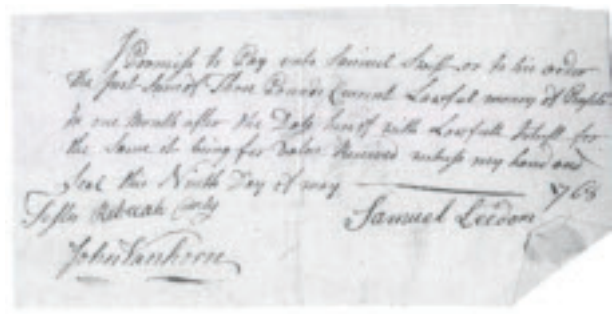 I Promiss to Pay unto Samuel Swift or to his order
the Just Sum of Three Pounds Current Lawful money of
in one Month after the Date hereof with Lawfull for
the Same it being for Value Received witness my hand and
Seal this Ninth Day of may 176
Rebecah
Samuel Leedom
John Vanhorn